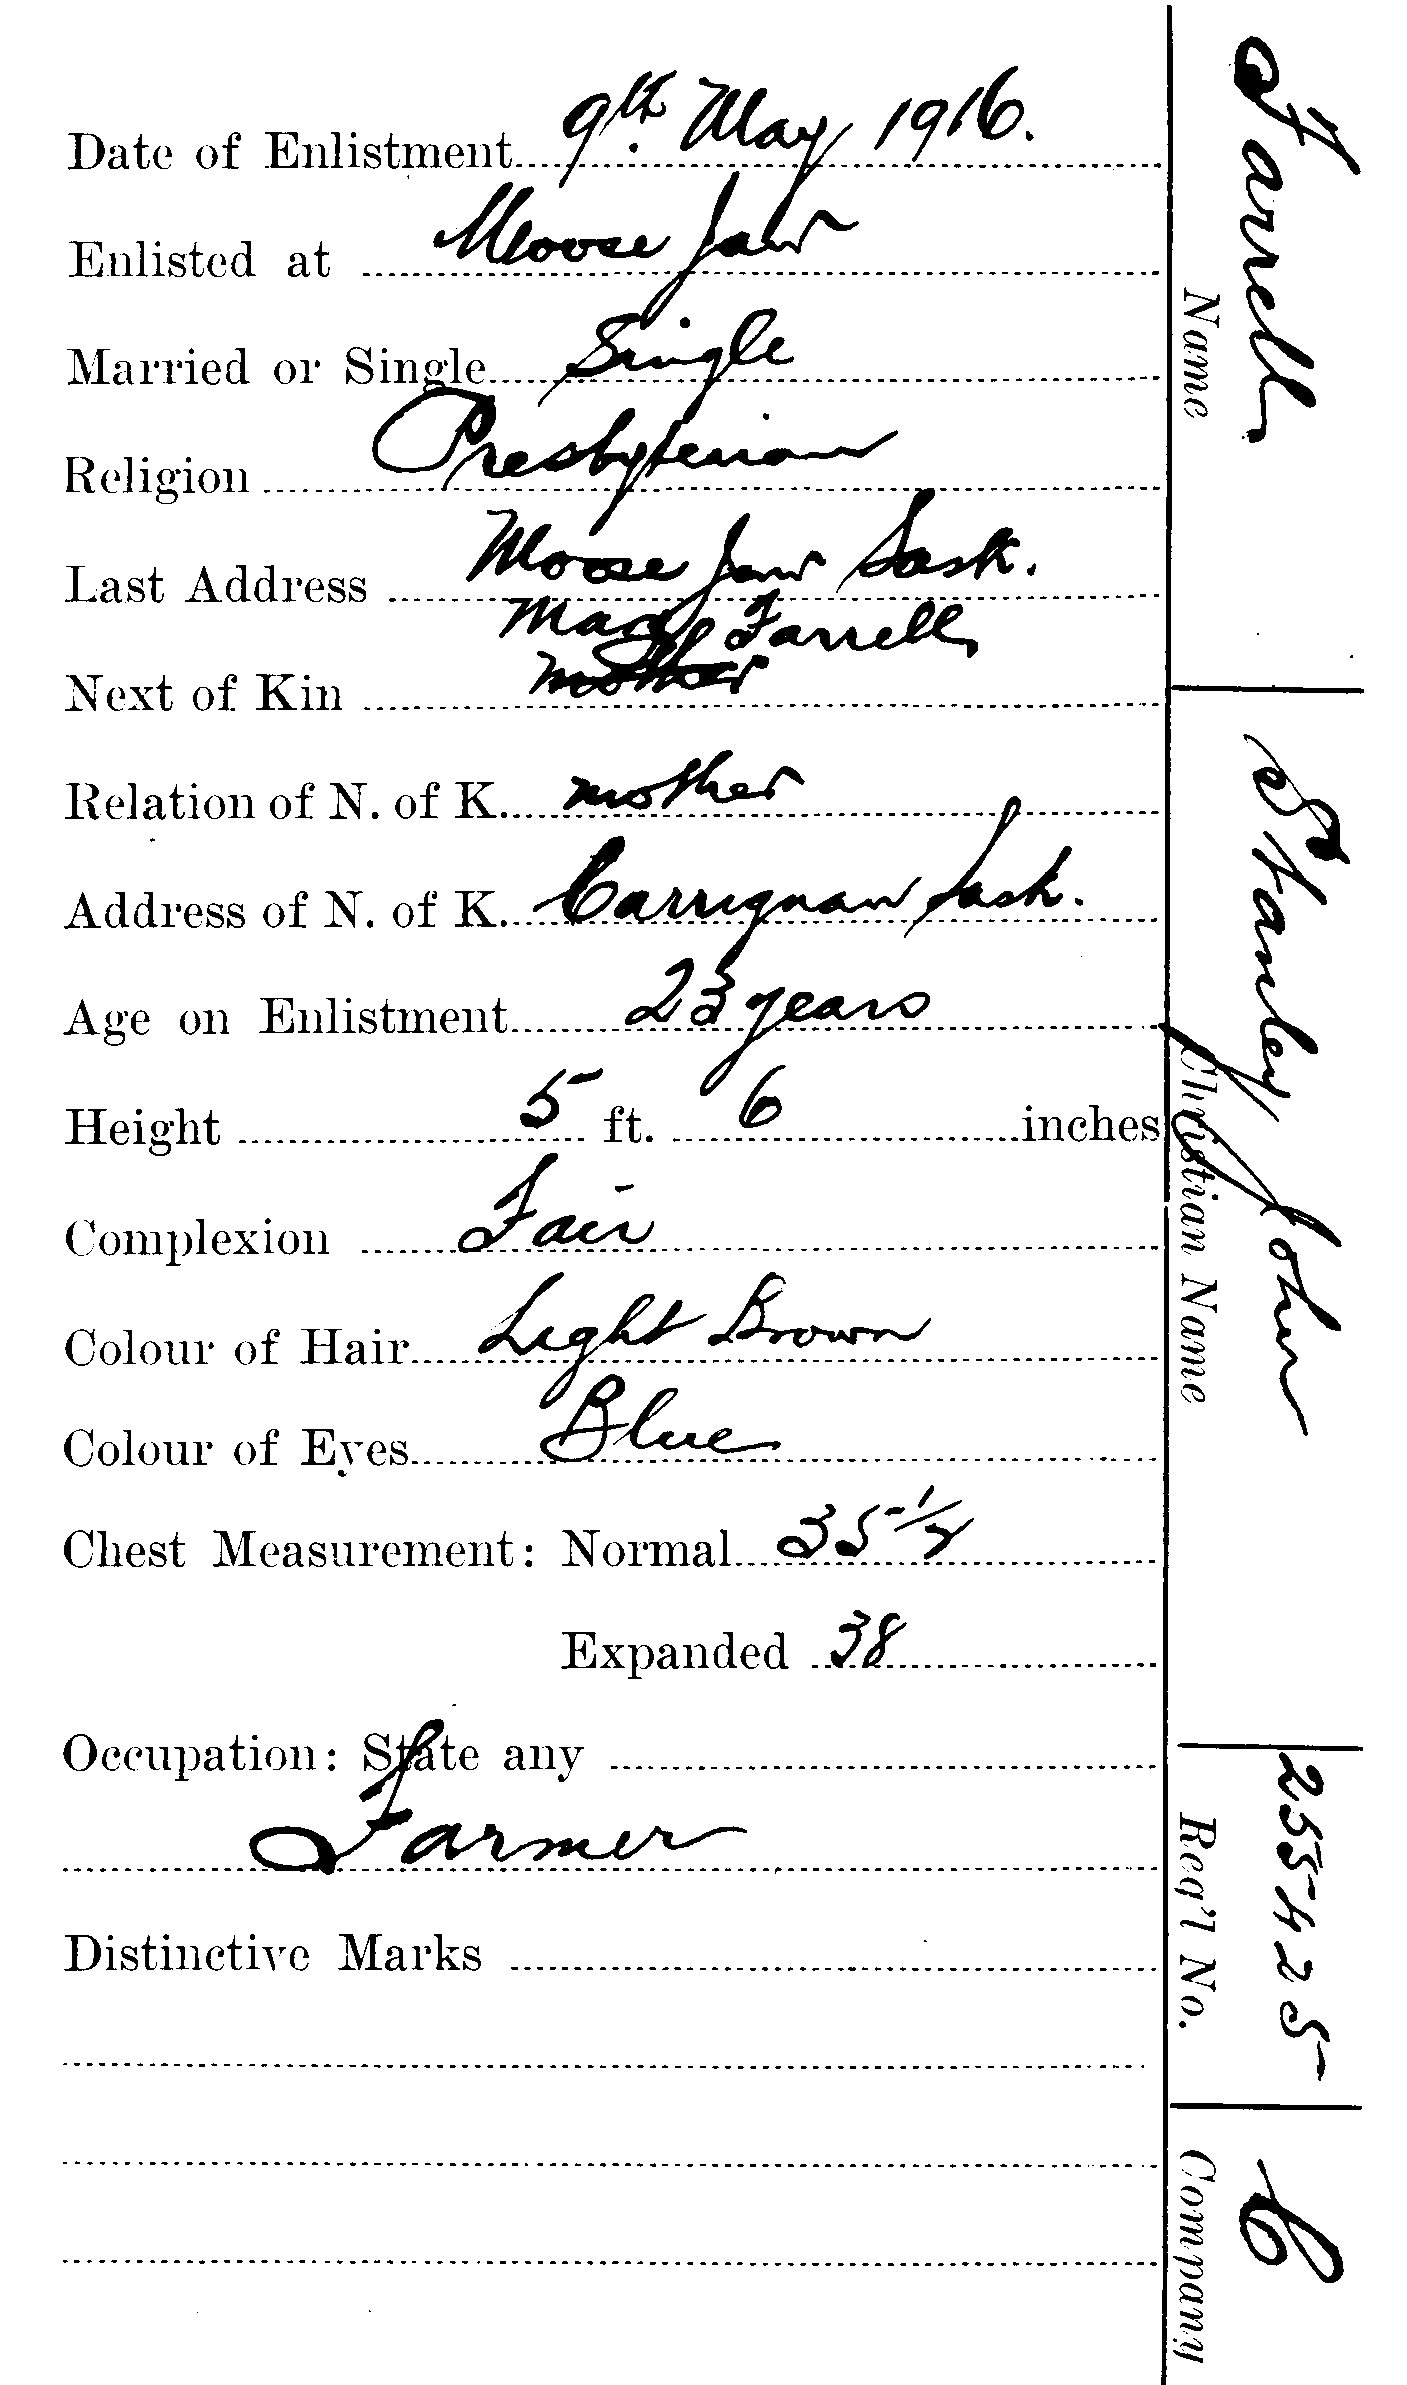 Date of Enlistment 9th. May 1916.
Enlisted at Moose Jaw
Married or Single Single
Religion Presbyterian
Last Address Moose Jaw Sask.
Mary Farrell
Next of Kin mother
Relation of N. of K. mother
Address of N. of K. Carrignan Sask.
Age on Enlistment 23 years
Height 5 ft. 6 inches
Complexion Fair
Colour of Hair Light Brown
Colour of Eyes Blue
Chest Measurement: Normal 35 1/2
Expanded 38
Occupation: State any
Farmer
Distinctive Marks
Farrell
Name
Stanley John
Christian Name
255425
Reg'l No.
C
Company